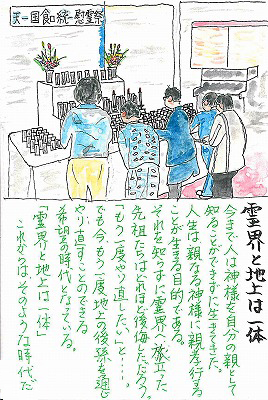 天一国 統一慰霊祭
霊界と地上は一体
今まで人は神様を自分の親として
知ることができずに生きてきた。
人生は親なる神様に親孝行する
ことが生きる目的である。
それを知らずに霊界へ旅立った
先祖たちはどれほど後悔しただろう。
「もう一度やり直したい」と…。
でも今、もう一度地上の後孫を通じ
やり直すことのできる
希望の時代となっている。
「霊界と地上は一体」
これからはそのような時代だ